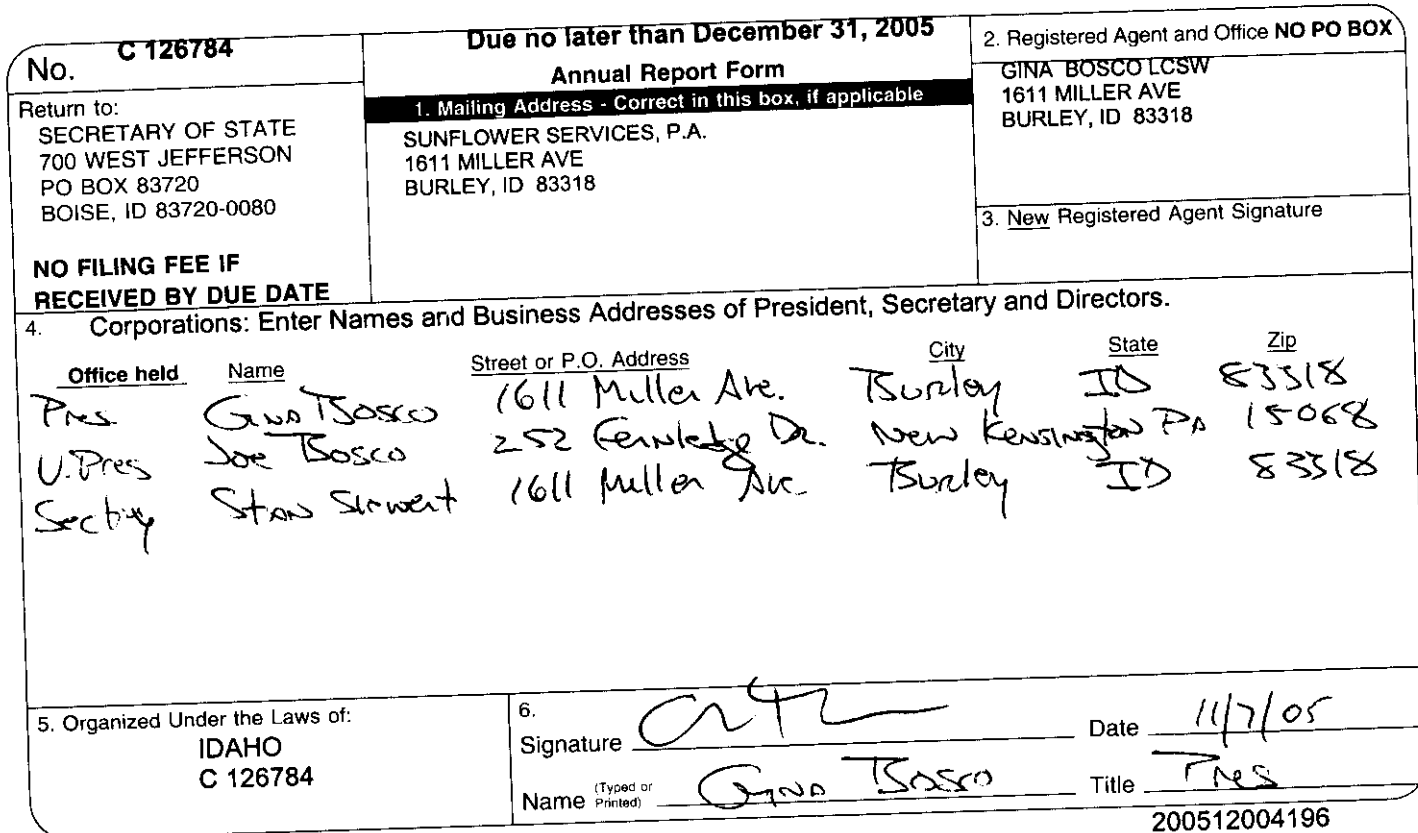 No. C 126784
Return to:
SECRETARY OF STATE
700 WEST JEFFERSON
PO BOX 83720
BOISE, ID 83720-0080
NO FILING FEE IF
RECEIVED BY DUE DATE
Due no later than December 31, 2005
Annual Report Form
1. Mailing Address - Correct in this box, if applicable
SUNFLOWER SERVICES, P.A.
1611 MILLER AVE
BURLEY, ID 83318
2. Registered Agent and Office NO PO BOX
GINA BOSCO LCSW
1611 MILLER AVE
BURLEY, ID 83318
3. New Registered Agent Signature
4. Corporations: Enter Names and Business Addresses of President, Secretary and Directors.
Office held Name Street or P.O. Address City State Zip
Pres. Gina Bosco 1611 Miller Ave. Burley ID 83318
V.Pres Joe Bosco 252 Dr. New Kensington PA 15068
Stan 1611 Miller Ave. Burley ID 83318
5. Organized Under the Laws of:
IDAHO
C 126784
6.
Signature Date 11/7/05
Name (Typed or Printed) Gina Bosco Title Pres
200512004196